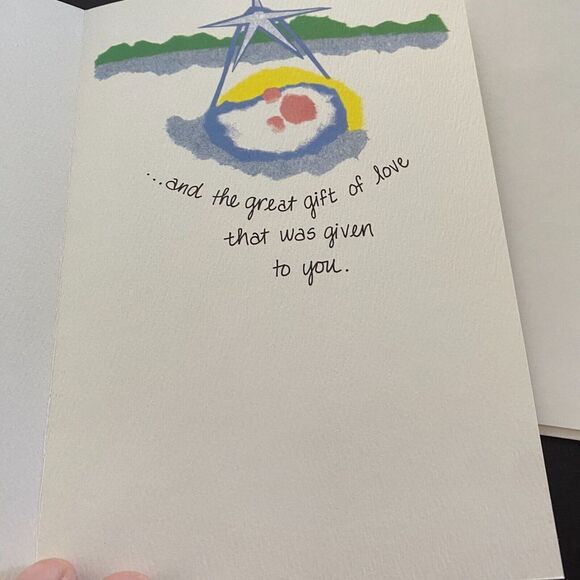 ...and the great gift of love
that was given
to you.